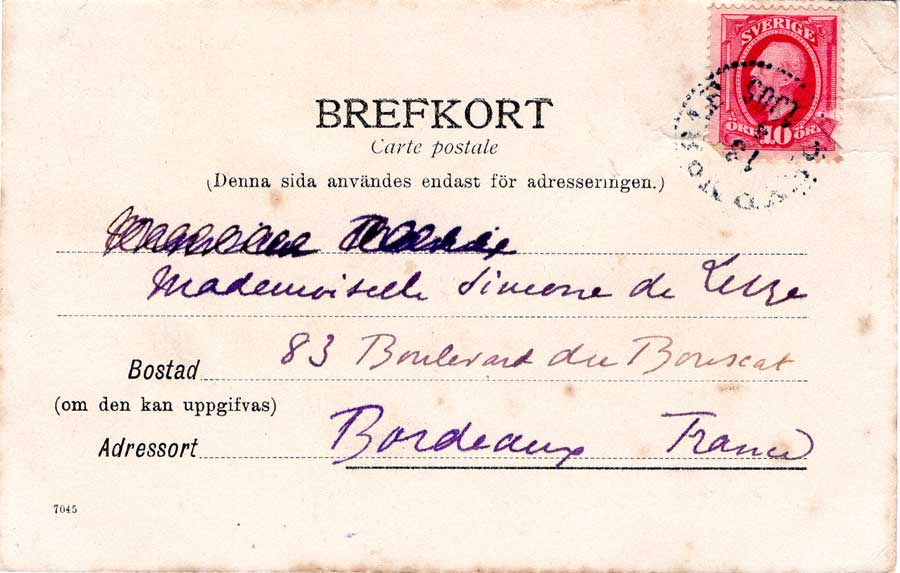 SVERIGE
ÖRE 10 ÖRE
13
3
1903
BREFKORT
Carte postale
(Denna sida användes endast för adresseringen.)
Mademoiselle Simone de
83 Boulevard du Bouscat
Bostad
(om den kan uppgifvas)
Bordeaux France
Adressort
7045